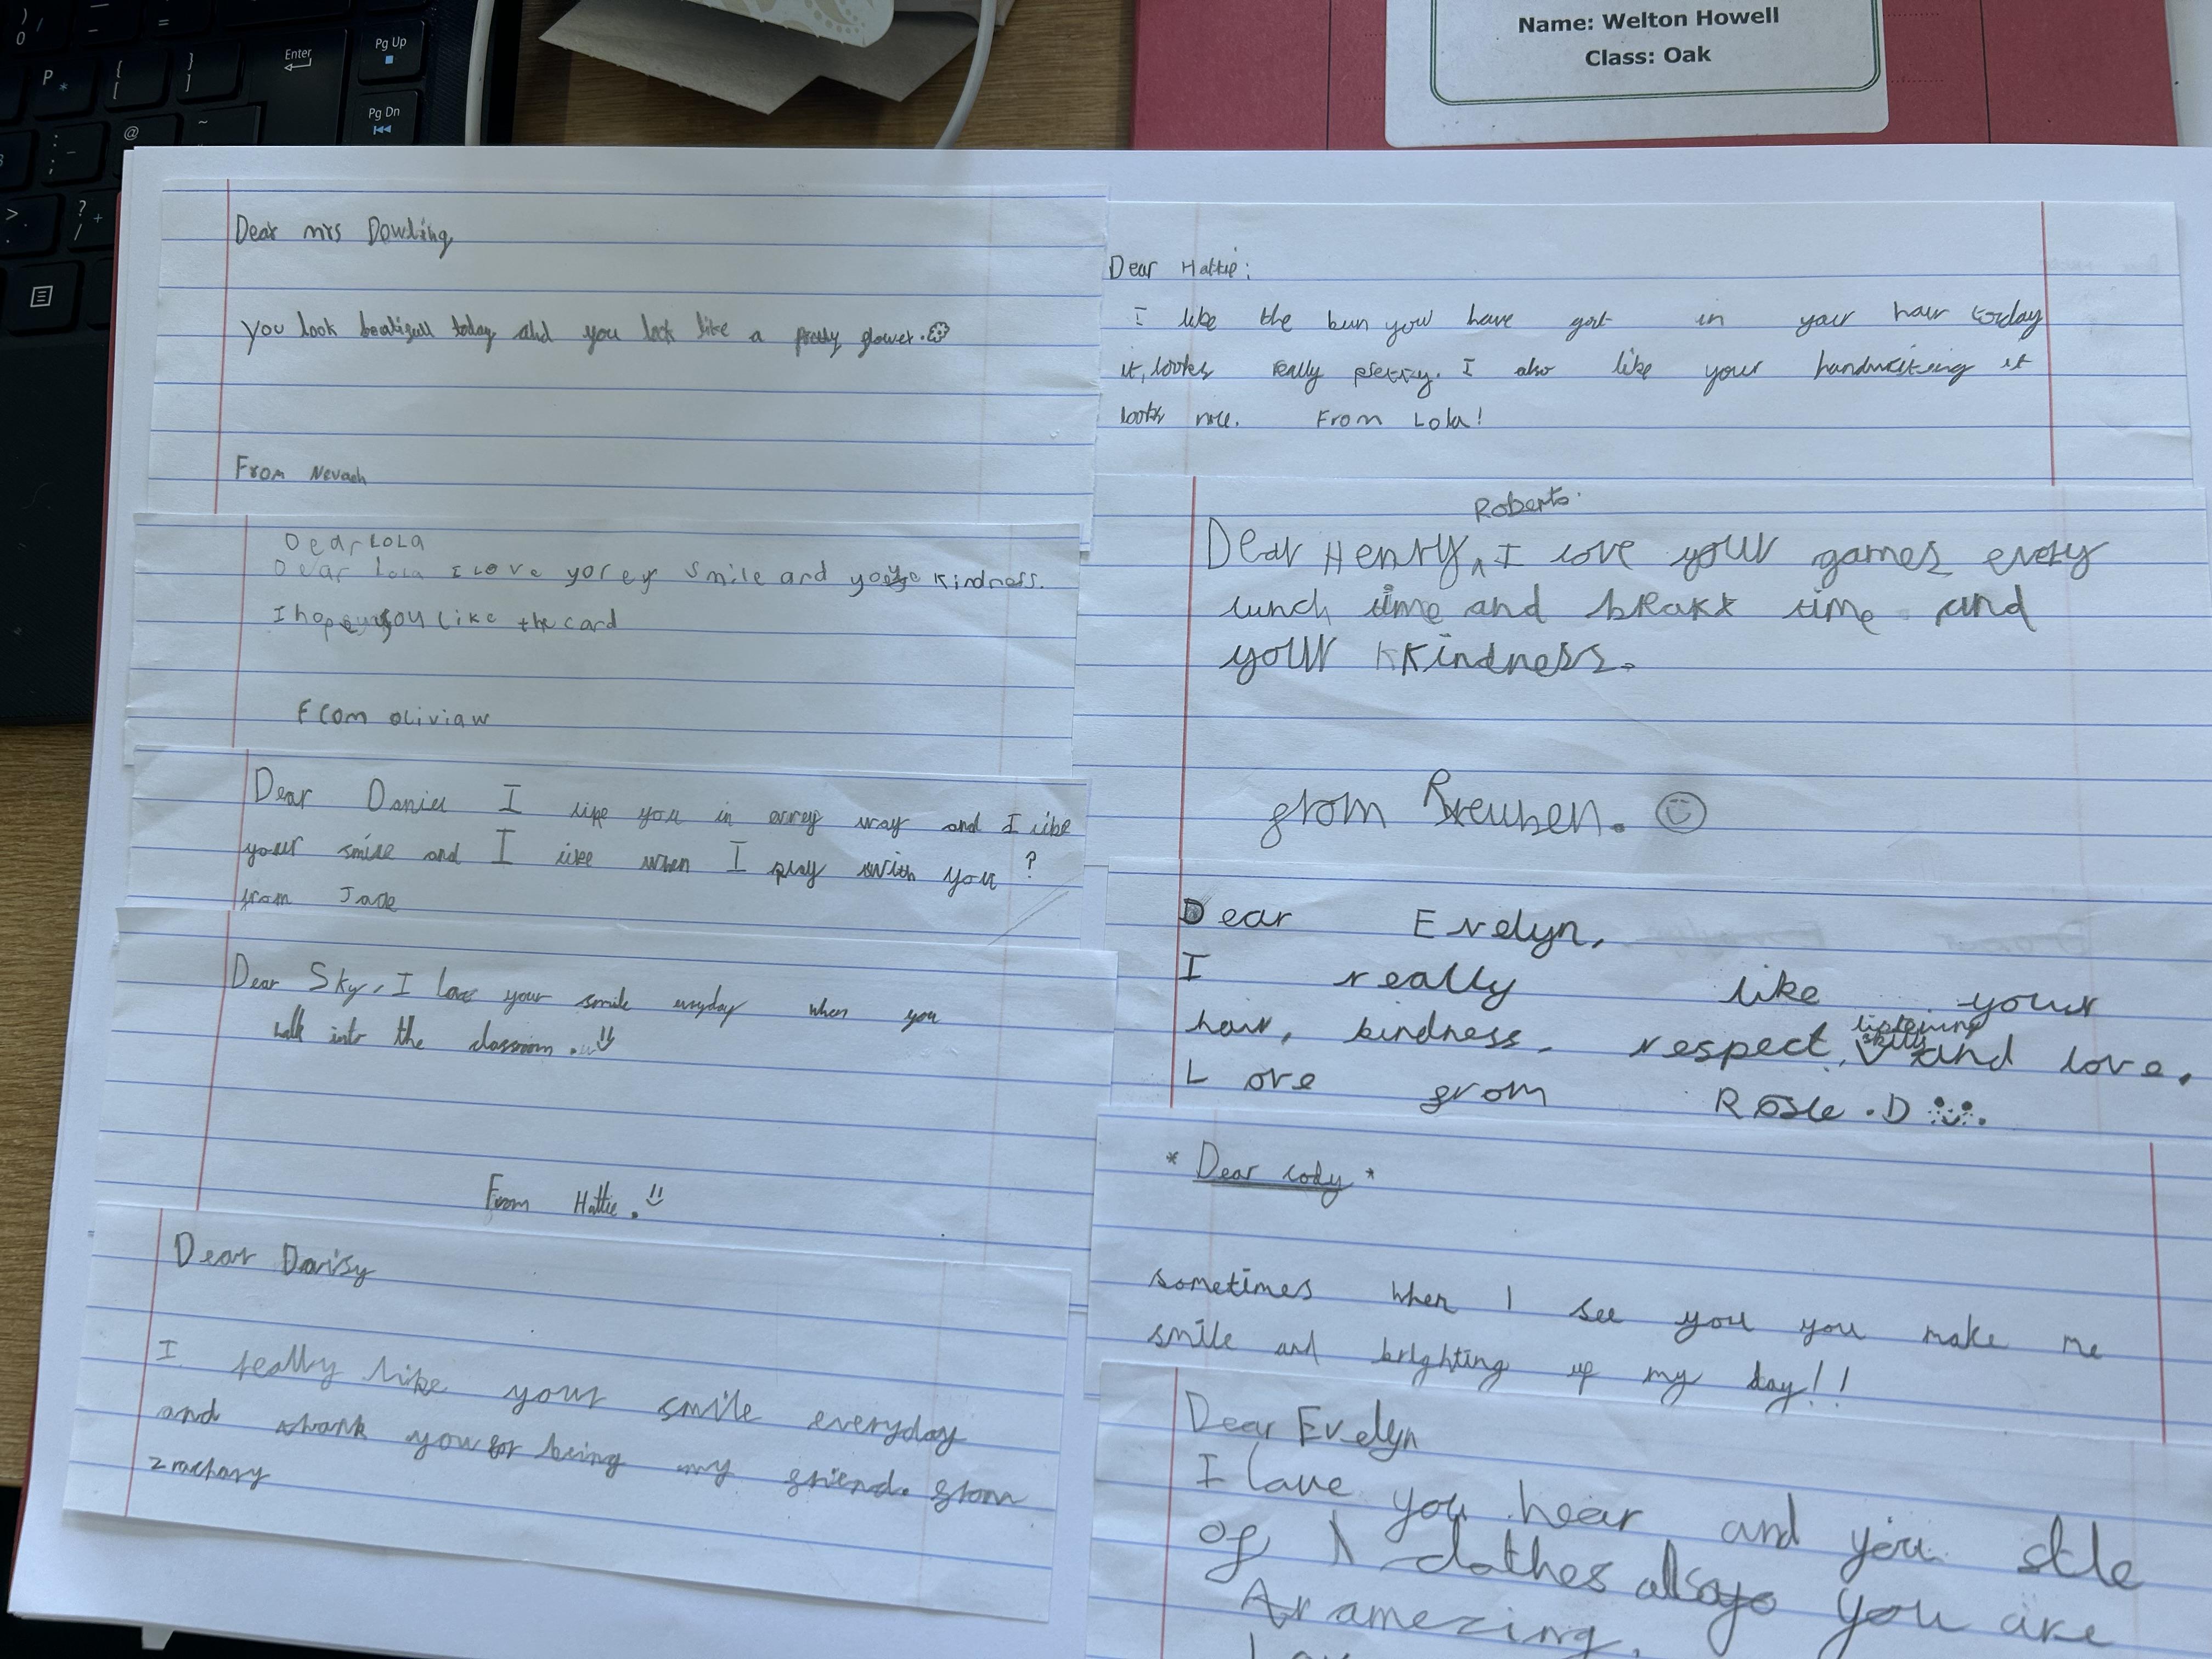 Name: Welton Howell
Class: Oak
Enter
Pg Up
Pg Dn
P
Dear mrs Dowling
you look beatifull today and you look like a pretty flower.
From Nevaeh
Dear LOLA
Dear Lola I Love yorer smile and kindness.
I hope you Like the card
From oliviaw
Dear Daniel I like you in every way and I like
your smile and I like when I play with you ?
from Jade
Dear Sky, I love your smile everyday when you
walk into the classroom.
From Hattie.
Dear Daisy
I really like your smile everyday
and thank you for being my friend. from
zrachary
Dear Hattie:
I like the bun you have got in your hair today
it, looks really pretty. I also like your handwriting it
looks nice. From Lola!
Roberts.
Dear Henry, I love your games every
lunch time and break time and
your kkindness.
from Reuben.
Dear Evelyn,
I really like your
listening
hair, kindness, respect, skills and love.
Love from Rosie.D
* Dear cody *
sometimes when I see you you make me
smile and brighting up my day!!
Dear Evelyn
I lave you hear and you stle
of clothes you are
amezing.